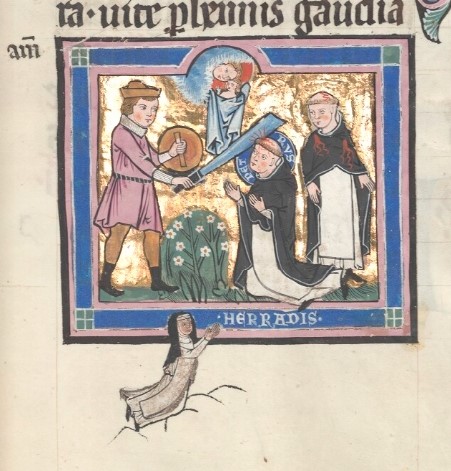 ta· uite p̲hennis gaudia
am̄
PET RVS
·HERRADIS·